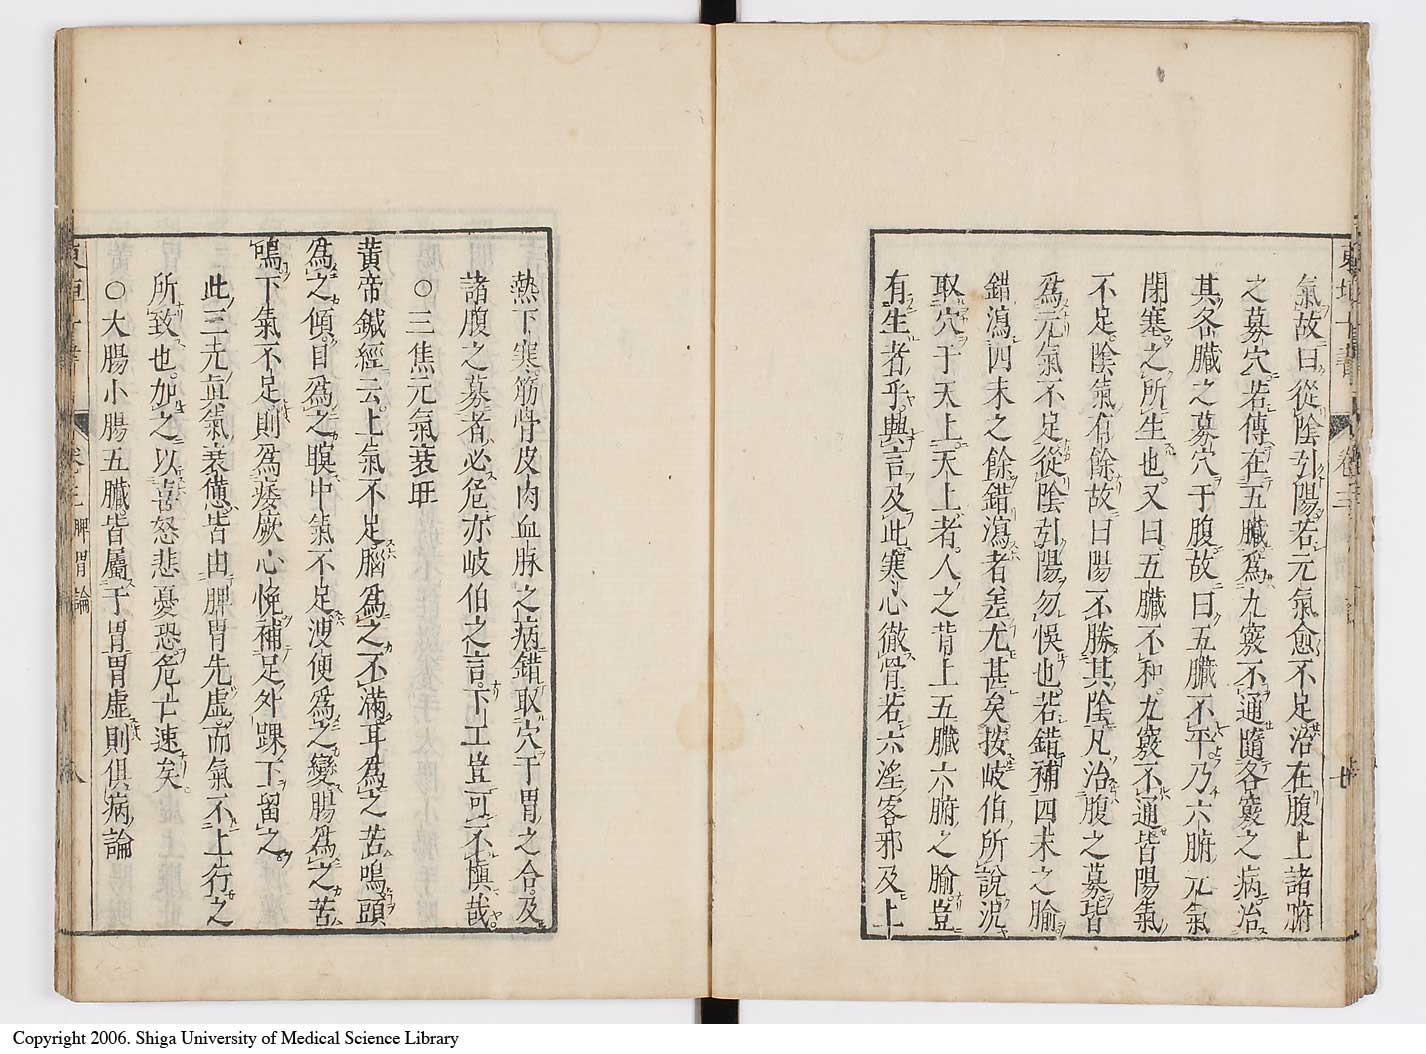 氣故曰從陰引陽若元氣愈不足治在腹上諸腑
之募穴若傳在五臟爲九竅不通隨各竅之病治
其各臟之募穴于腹故曰五臟不平乃六腑元氣
閉塞之所生也又曰五臟不和九竅不通皆陽氣
不足陰氣有餘故曰陽不勝其陰凡治腹之募皆
爲元氣不足從陰引陽勿悞也若錯補四末之腧
錯瀉四末之餘錯瀉者差尤甚矣按岐伯所說況
取穴于天上天上者人之背上五臟六腑之腧豈
有生者乎興言及此寒心徹骨若六淫客邪及上
熱下寒筋骨皮肉血脉之病錯取穴于胃之合及
諸腹之募者必危亦岐伯之言下工豈可不愼哉
○三焦元氣衰旺
黄帝鍼經云上氣不足腦爲之不滿耳爲之苦鳴頭
爲之傾目爲之瞑中氣不足溲便爲之變腸爲之苦
鳴下氣不足則爲痿厥心悗補足外踝下留之
此三元眞氣衰憊皆由脾胃先虛而氣不上行之
所致也加之以喜怒悲憂恐危亡速矣
○大腸小腸五臟皆屬于胃胃虛則俱病論
東垣十書 卷三 脾胃論 八
Copyright 2006. Shiga University of Medical Science Library